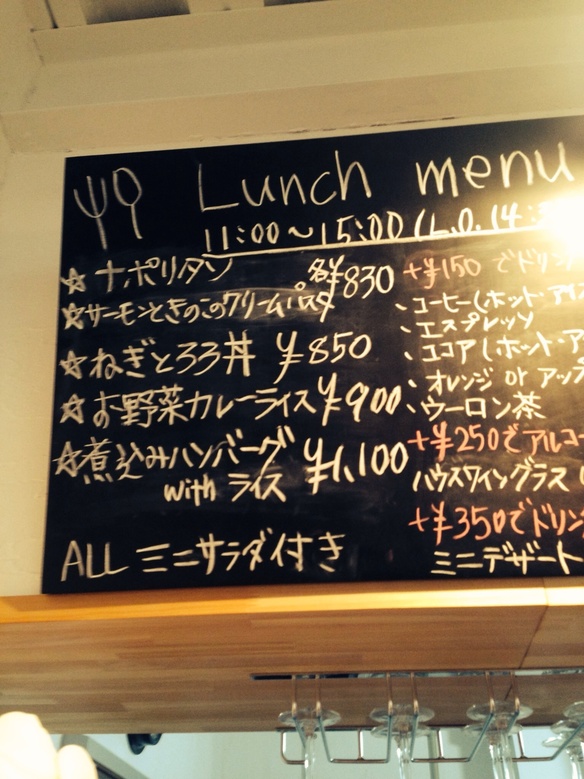 Lunch menu
11:00～15:00 (L.O.14:
☆ナポリタン 各¥830
☆サーモンときのこのクリームパスタ
☆ねぎとろ丼 ¥850
☆お野菜カレーライス ¥900
☆煮込みハンバーグ ¥1,100
with ライス
ALL ミニサラダ付き
+¥150 でドリン
、コーヒー(ホット・アイス
、エスプレッソ
、ココア(ホット・ア
、オレンジ or アップ
、ウーロン茶
+¥250でアルコー
ハウスワイングラス(
+¥350でドリン
ミニデザート